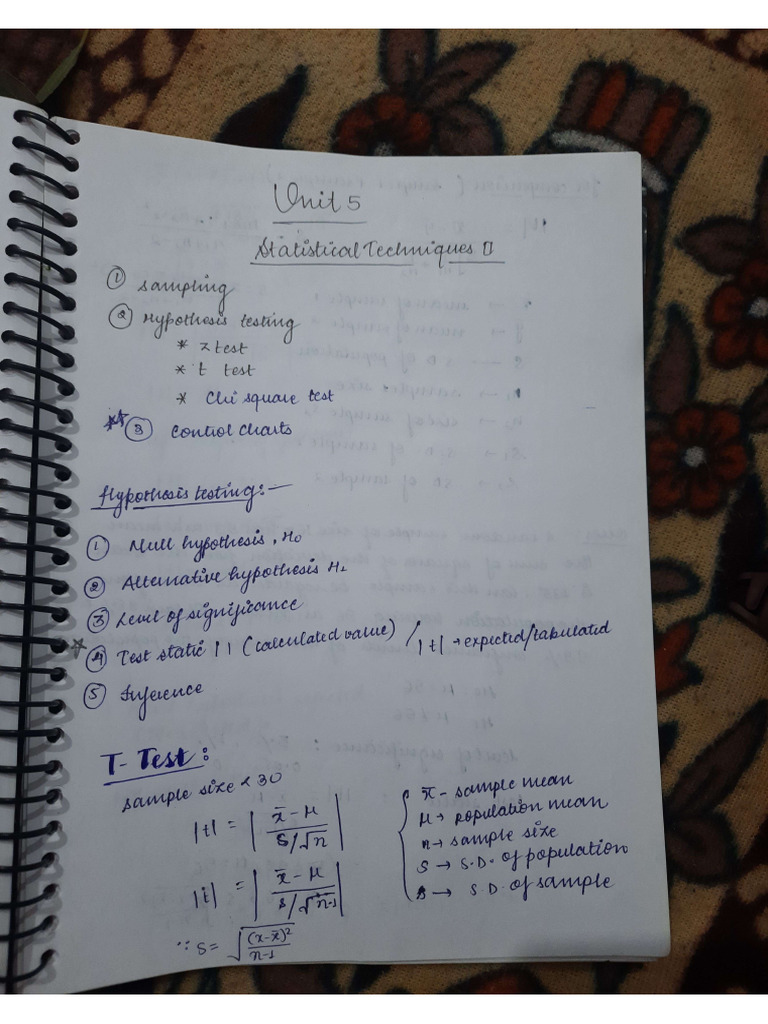 Unit 5
Statistical Techniques II
① Sampling
② Hypothesis testing
* z test
* t test
* Chi square test
** ③ Control charts
Hypothesis testing:-
① Null hypothesis, H₀
② Alternative hypothesis H₁
③ Level of significance
④ Test static | | (calculated value) / |t| → expected/tabulated
⑤ Inference
T-Test:
sample size < 30
|t| = | x̄ - μ / S/√n |
|t| = | x̄ - μ / s/√n-1 |
∵ S = √(x-x̄)² / n-1
x̄ - sample mean
μ → population mean
n → sample size
S → S.D. of population
s → S.D. of sample